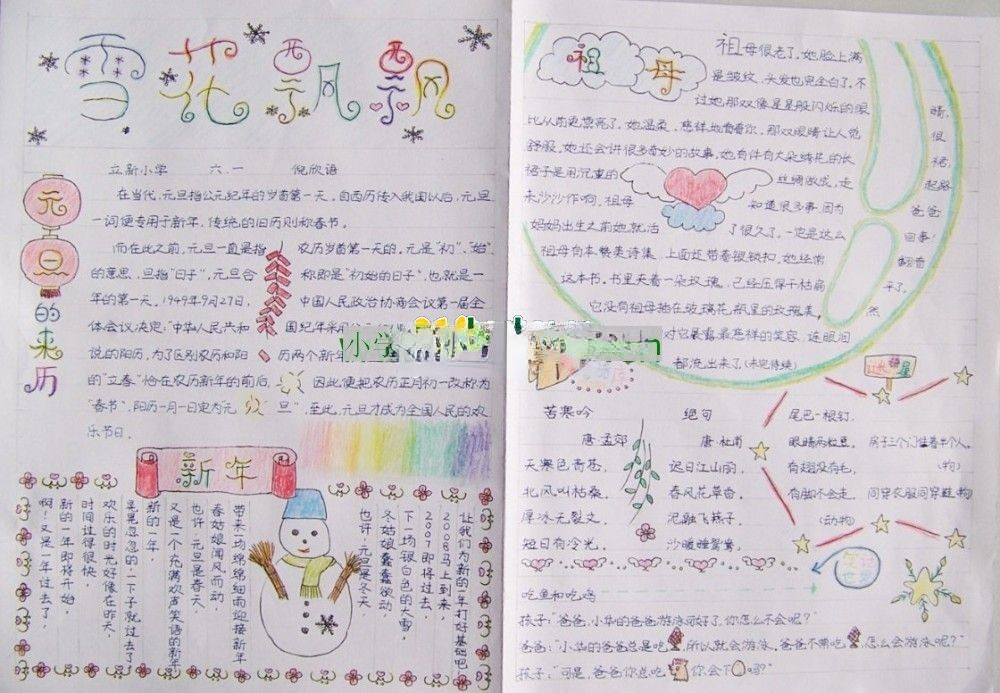 雪花飘飘
立新小学 六.一 倪欣语
元旦的来历
在当代,元旦指公元纪年的岁首第一天,自西历传入我国以后,元旦
一词便专用于新年,传统的旧历则称春节。
而在此之前,元旦一直是指农历岁首第一天的。元是"初"、"始"
的意思,旦指"日子",元旦合称即是"初始的日子",也就是一
年的第一天。1949年9月27日,中国人民政治协商会议第一届全
体会议决定:"中华人民共和国纪年采用
说的阳历,为了区别农历和阳历两个新年
的"立春"恰在农历新年的前后,因此便把农历正月初一改称为
"春节",阳历一月一日定为"元旦",至此,元旦才成为全国人民的欢
乐节日。
新年
让我们为新的一年打好基础吧!
2008马上到来,
2007即将过去,
下一场银白色的大雪,
冬姑娘蠢蠢欲动
也许,元旦是冬天,
带来一场绵绵细雨迎接新年
春姑娘闻风而动
也许,元旦是春天,
又是一个充满欢声笑语的新年
新的一年,
呈晃忽忽的一下子就过去了,
欢乐的时光好像在昨天,
时间过得很快,
新的一年即将开始
啊!又是一年过去了,
祖母
祖母很老了,她脸上满
是皱纹,头发也完全白了,不
过她那双像星星般闪烁的眼睛,
比从前更漂亮了。她温柔、慈祥地看着你,那双眼睛让人觉很
舒服,她还会讲很多奇妙的故事,她有件有大朵绣花的长裙,
裙子是用沉重的丝绸做成,走起路
来沙沙作响。祖母知道很多事,因为爸爸
妈妈出生之前她就活了很久了,一定是这么回事!
祖母有本赞美诗集,上面还带着银锁扣,她经常翻看
这本书,书里夹着一朵玫瑰,已经压得干枯扁平了,
它没有祖母插在玻璃花瓶里的玫瑰美,然
对它展露最慈祥的笑容,连眼泪
都流出来了。(未完待续)
苦寒吟
唐·孟郊
天寒色青苍,
北风叫枯桑,
厚冰无裂文,
短日有冷光。
绝句
唐·杜甫
迟日江山丽,
春风花草香。
泥融飞燕子,
沙暖睡鸳鸯。
尾巴一根钉,
眼睛两粒豆,
有翅没有毛,
有脚不会走。
(动物)
房子三个门住着半个人。
(物)
同穿衣服同穿鞋(物)
笑话世界
吃鱼和吃鸡
孩子:"爸爸,小华的爸爸游泳可好了,你怎么不会呢?"
爸爸:"小华的爸爸总是吃,所以就会游泳,爸爸不常吃,怎么会游泳呢?"
孩子:"可是,爸爸你总吃你会下吗?"
小学 小